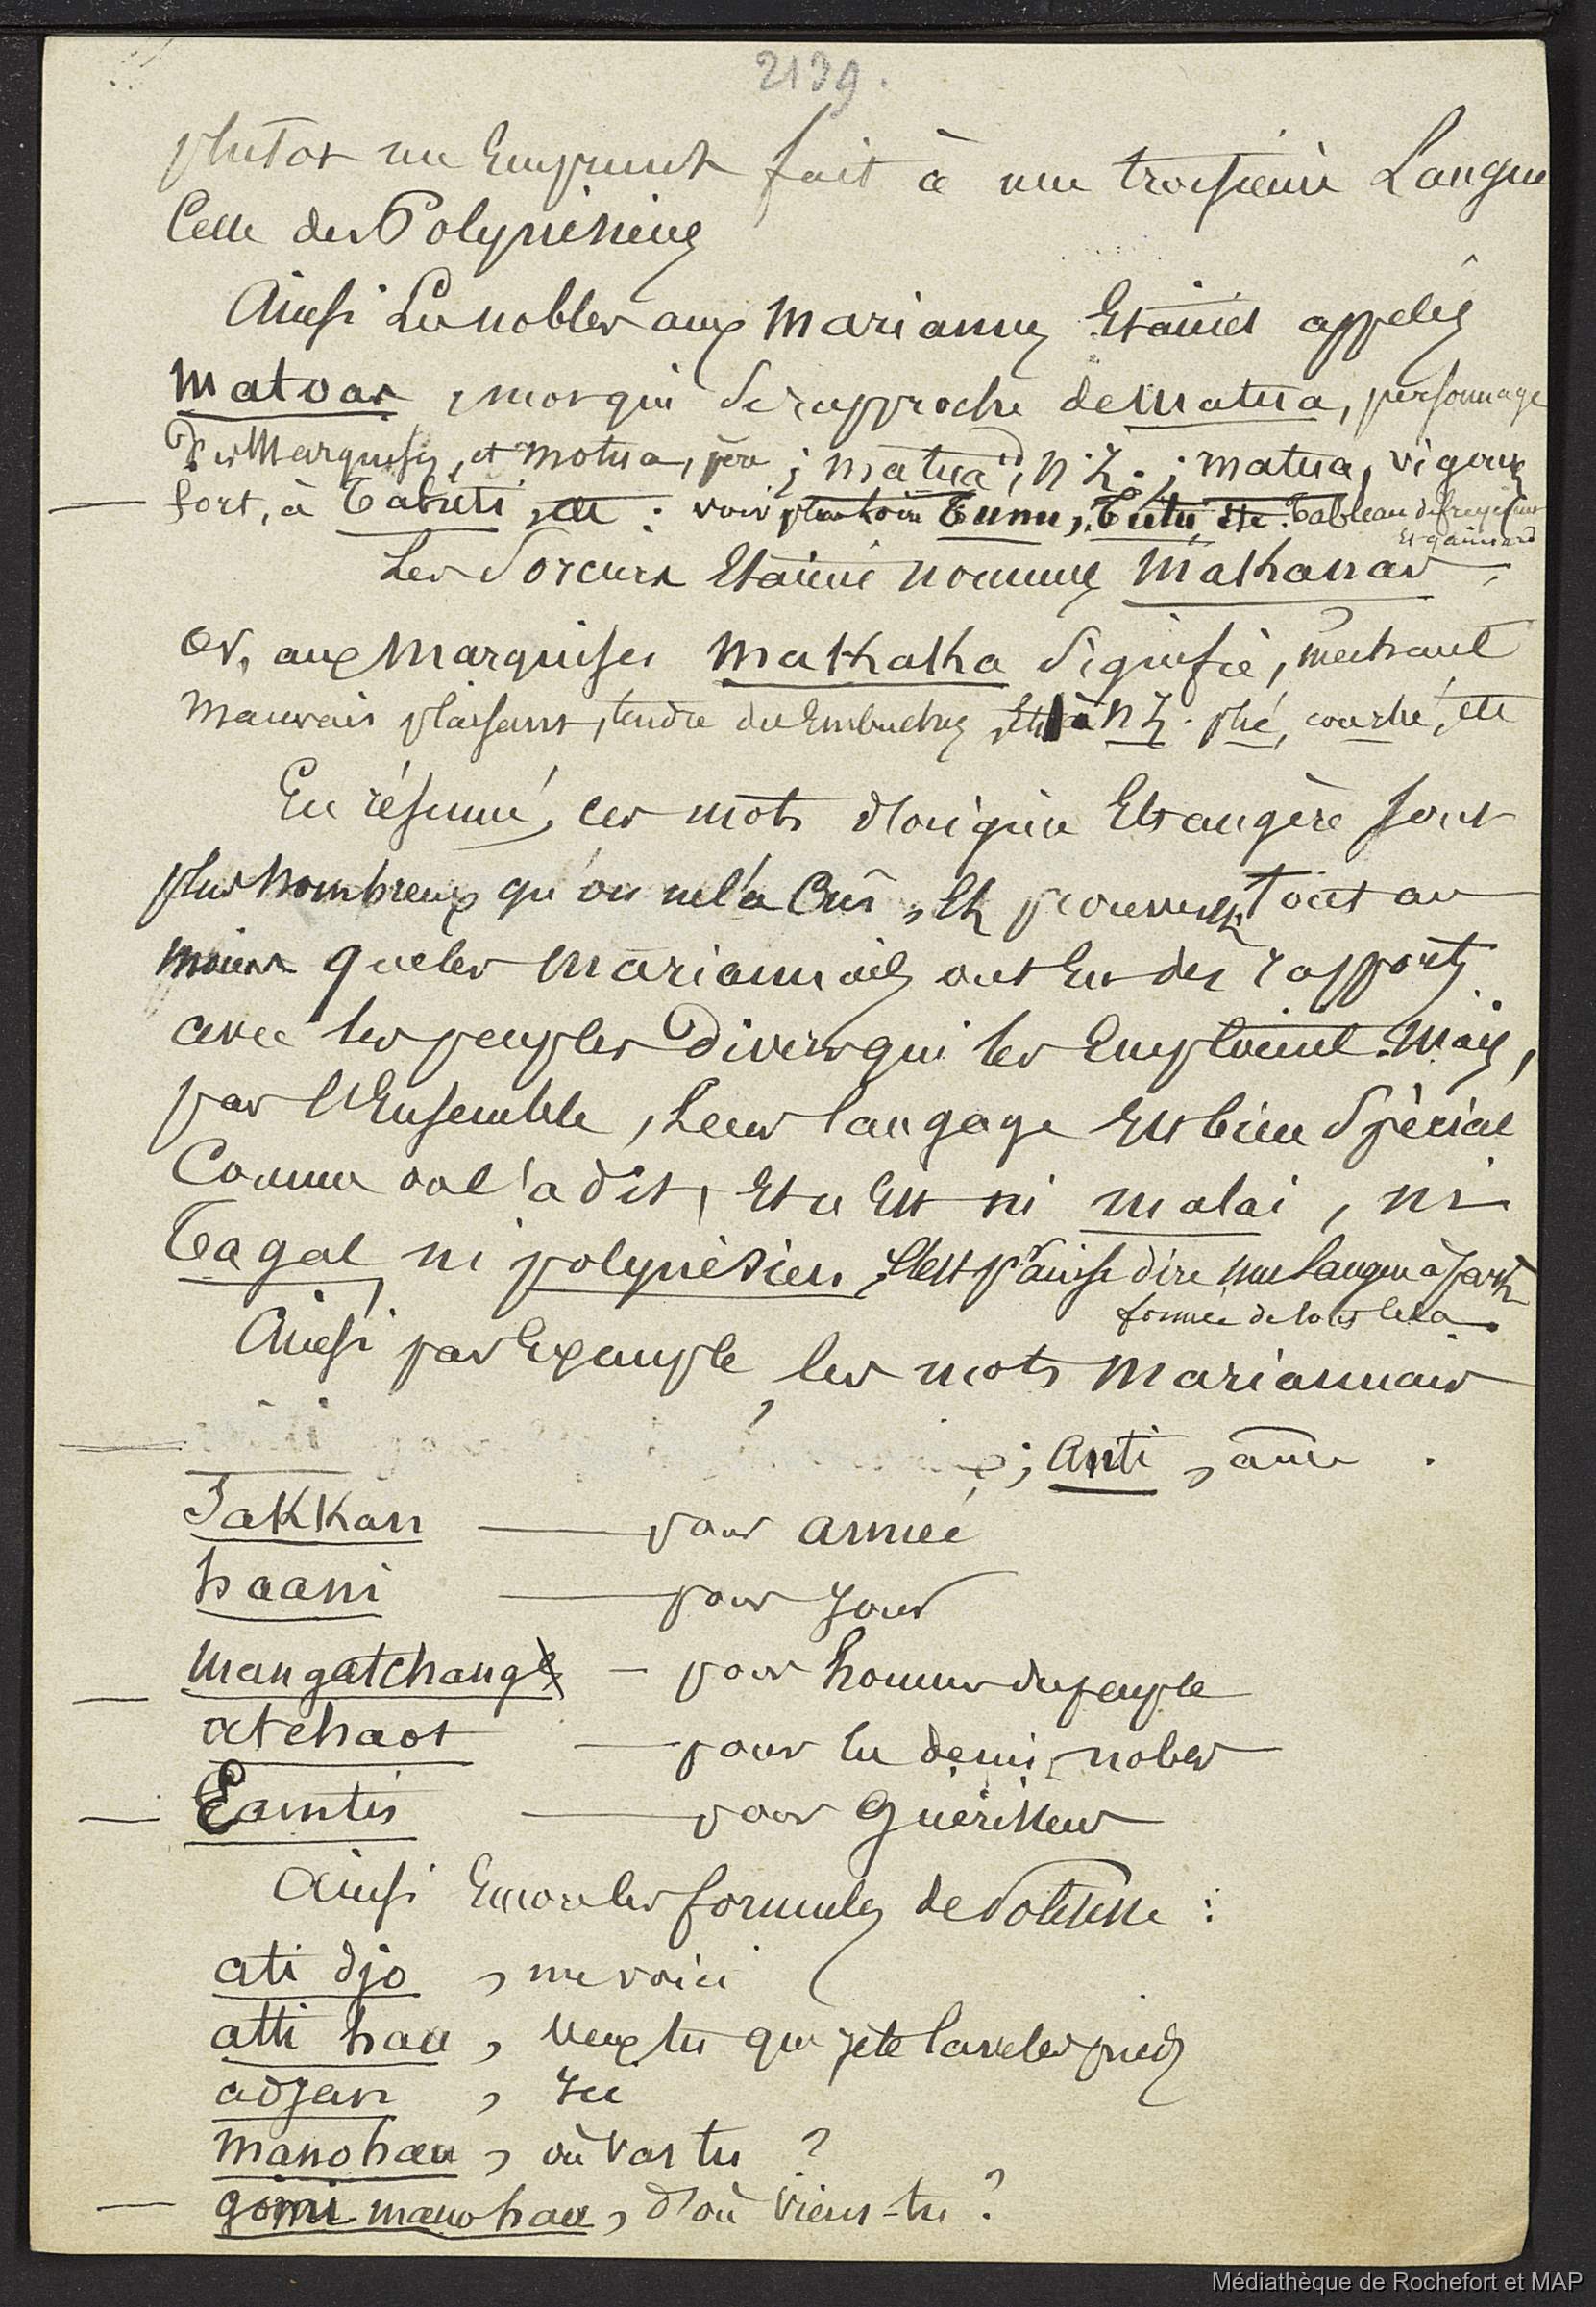 2139.
plutot un Emprunt fait à une troisieme Langue
Celle des Polynésiens
Ainsi Les nobles aux Mariannes Etaient appelés
Matoas, mot qui se rapproche de Matua, personnage
des Marquises, et Motua, père ; matua, id, N. Z. ; matua, vigoureux
fort, à Tahiti, etc : voir plus loin Tunu, Tutu, etc. Tableau
Les Sorciers Etaient nommés Makanas,
or, aux Marquises Makaka Signifie, mechant
mauvais plaisant, tendre des Embuches, et à N Z. plié, courbé, etc
En résumé, ces mots d'origine Etrangère sont
plus nombreux qu'on ne l'a Crû, Et prouvent tout au
moins que les Mariannais ont Eu des rapports
avec les peuples Divers qui les Emploient. Mais,
par l'Ensemble, Leur langage Est bien Spécial
Comme on l'a dit, Et n'Est ni malai, ni
Tagal, ni polynésien, C'est pr ainsi dire une Langue à part
formée de tout cela.
Ainsi par Exemple, les mots Mariannais
; Anti, âme.
Takkan — pour année
haani — pour jour
Mangatchang — pour homme du peuple
atchaot — pour les demi nobles
Eamtis — pour Guérisseur
Ainsi Encore les formules de Politesse :
ati djo, me voici
atti hau, veux tu que je te lave les pieds
adjan, Ici
mano hau, où vas tu ?
gomi mano hau, d'où viens-tu ?
Médiathèque de Rochefort et MAP